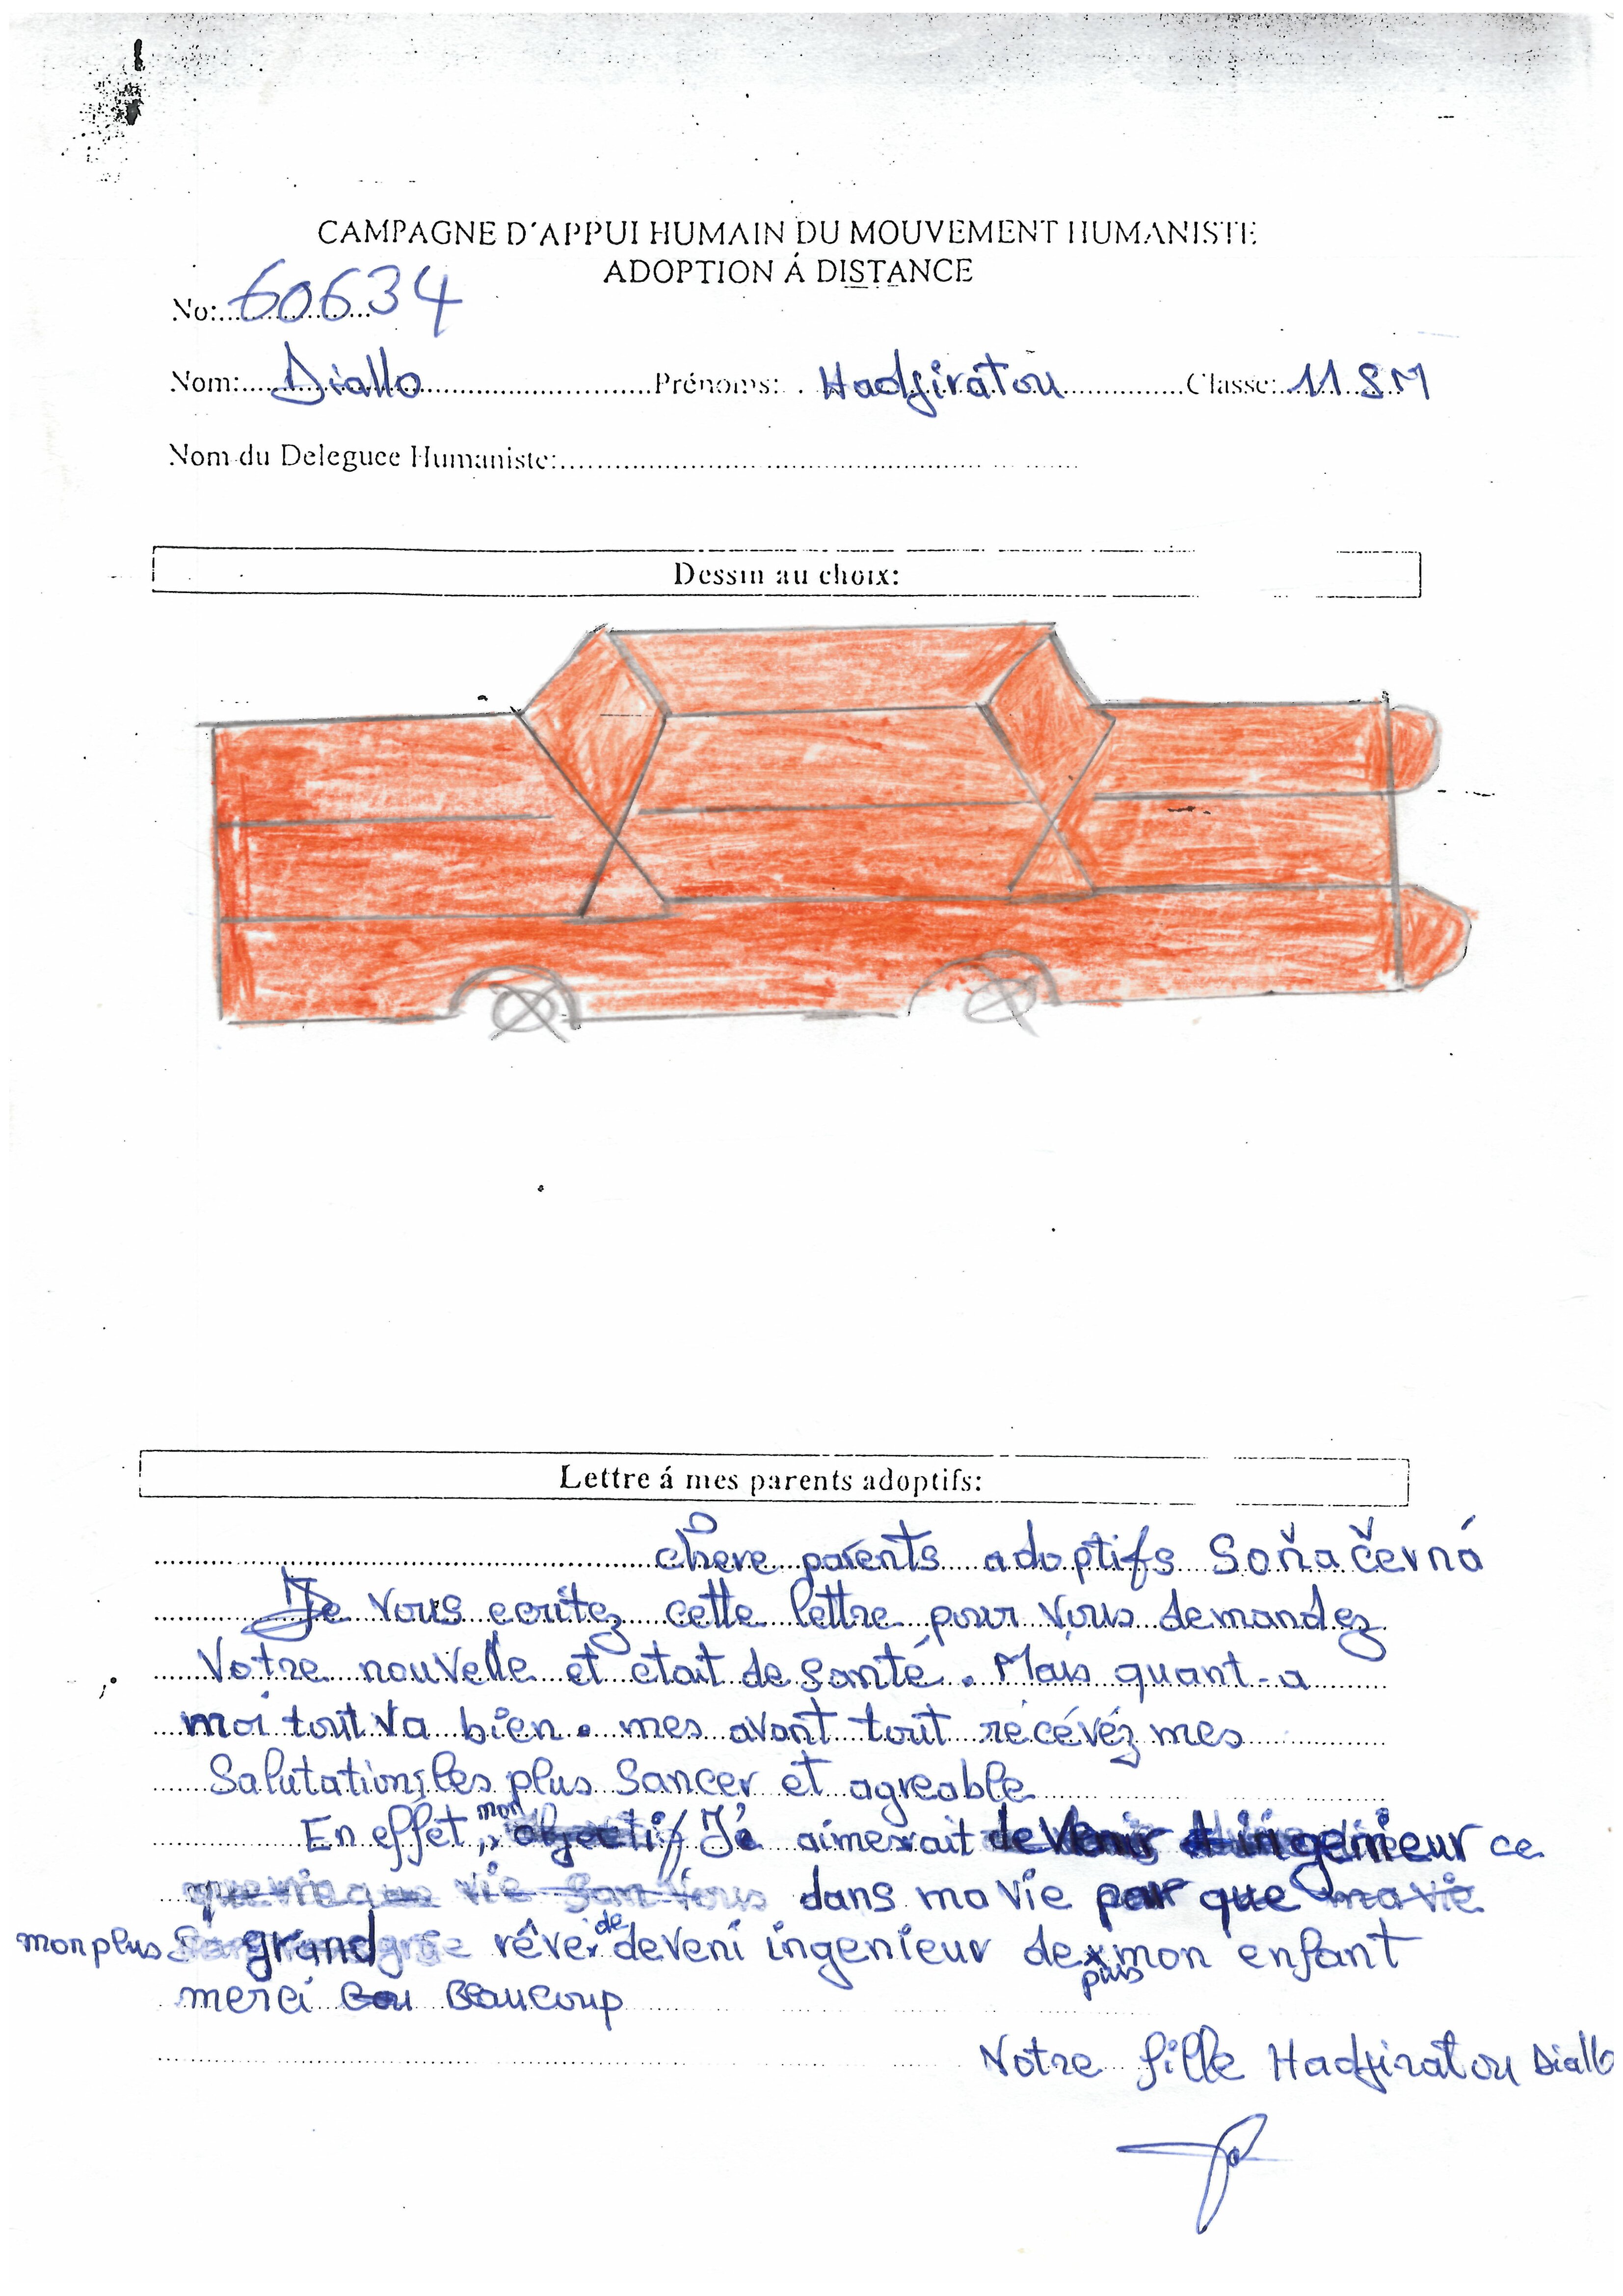 CAMPAGNE D'APPUI HUMAIN DU MOUVEMENT HUMANISTE
ADOPTION Á DISTANCE
No: 60634
Nom: Diallo Prénoms: Hadjiratou Classe: 11 SM
Nom du Deleguee Humaniste:
Dessin au choix:
Lettre á mes parents adoptifs:
chere parents adoptifs Soňa Černá
Je vous ecritez cette lettre pour vous demandez
votre nouvelle et etait de santé. Mais quant-a
moi tout va bien. mes avant tout récévéz mes
Salutations les plus Sancer et agreable
En effét, mon objectif Je aimerait devenir ingenieur ce
dans ma vie par que ma vie
mon plus grand rêve de deveni ingenieur depuis mon enfant
merci Beaucoup
Notre fille Hadjiratou Diallo